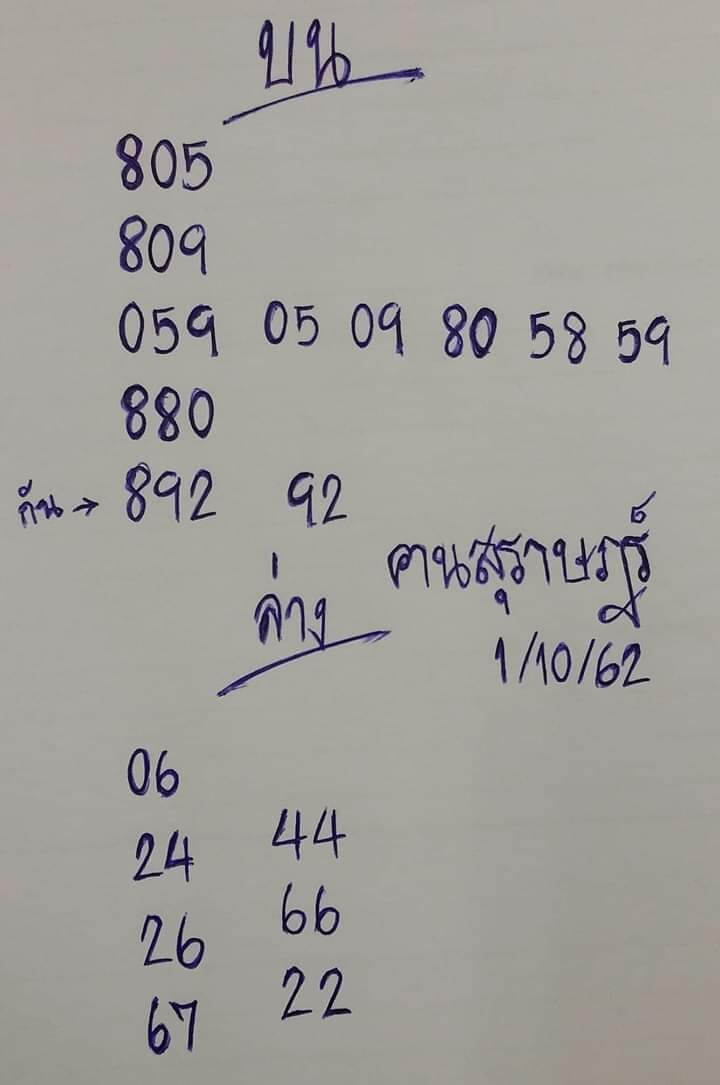 บน
805
809
059 05 09 80 58 59
880
กัน → 892 92
ล่าง
คนสุราษฎร์
1/10/62
06
24 44
26 66
67 22